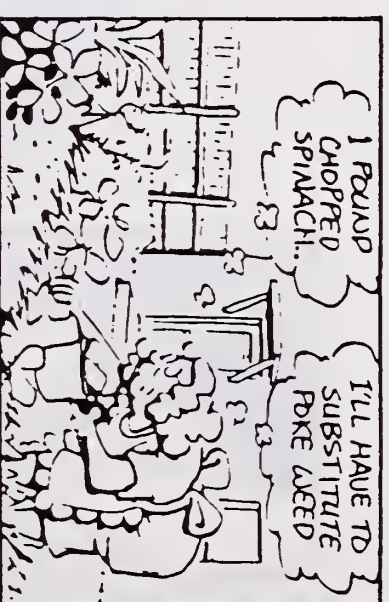 1 POUND
CHOPPED
SPINACH..
I'LL HAVE TO
SUBSTITUTE
POKE WEED